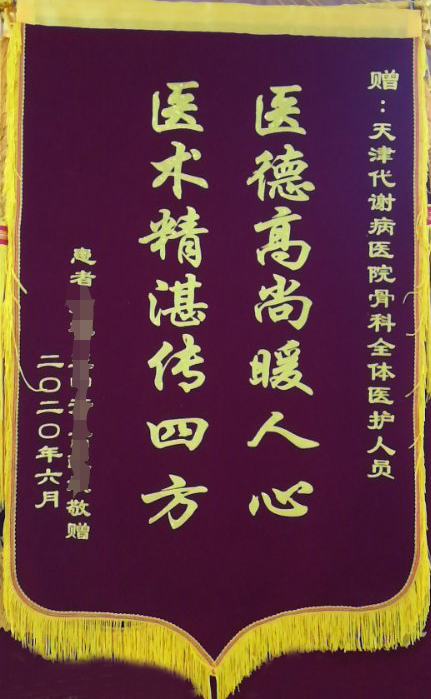 赠：天津代谢病医院骨科全体医护人员
医德高尚暖人心
医术精湛传四方
患者敬赠
二〇二〇年六月